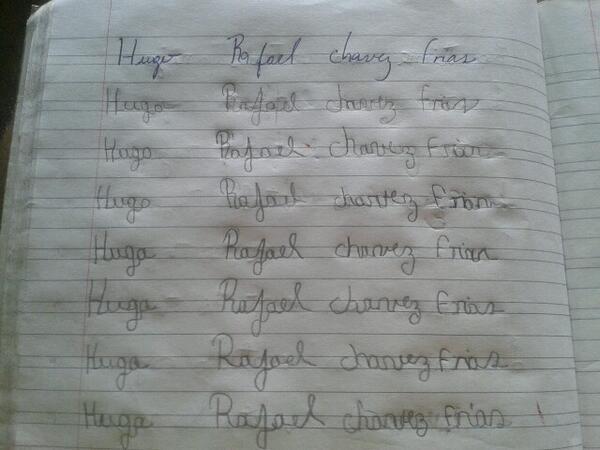 Hugo Rafael chavez frias
Hugo Rafael chavez frias
Hugo Rafael chavez frias
Hugo Rafael chavez frias
Huga Rafael chavez frias
Huga Rafael chavez frias
Huga Rafael chavez frias
Huga Rafael chavez frias